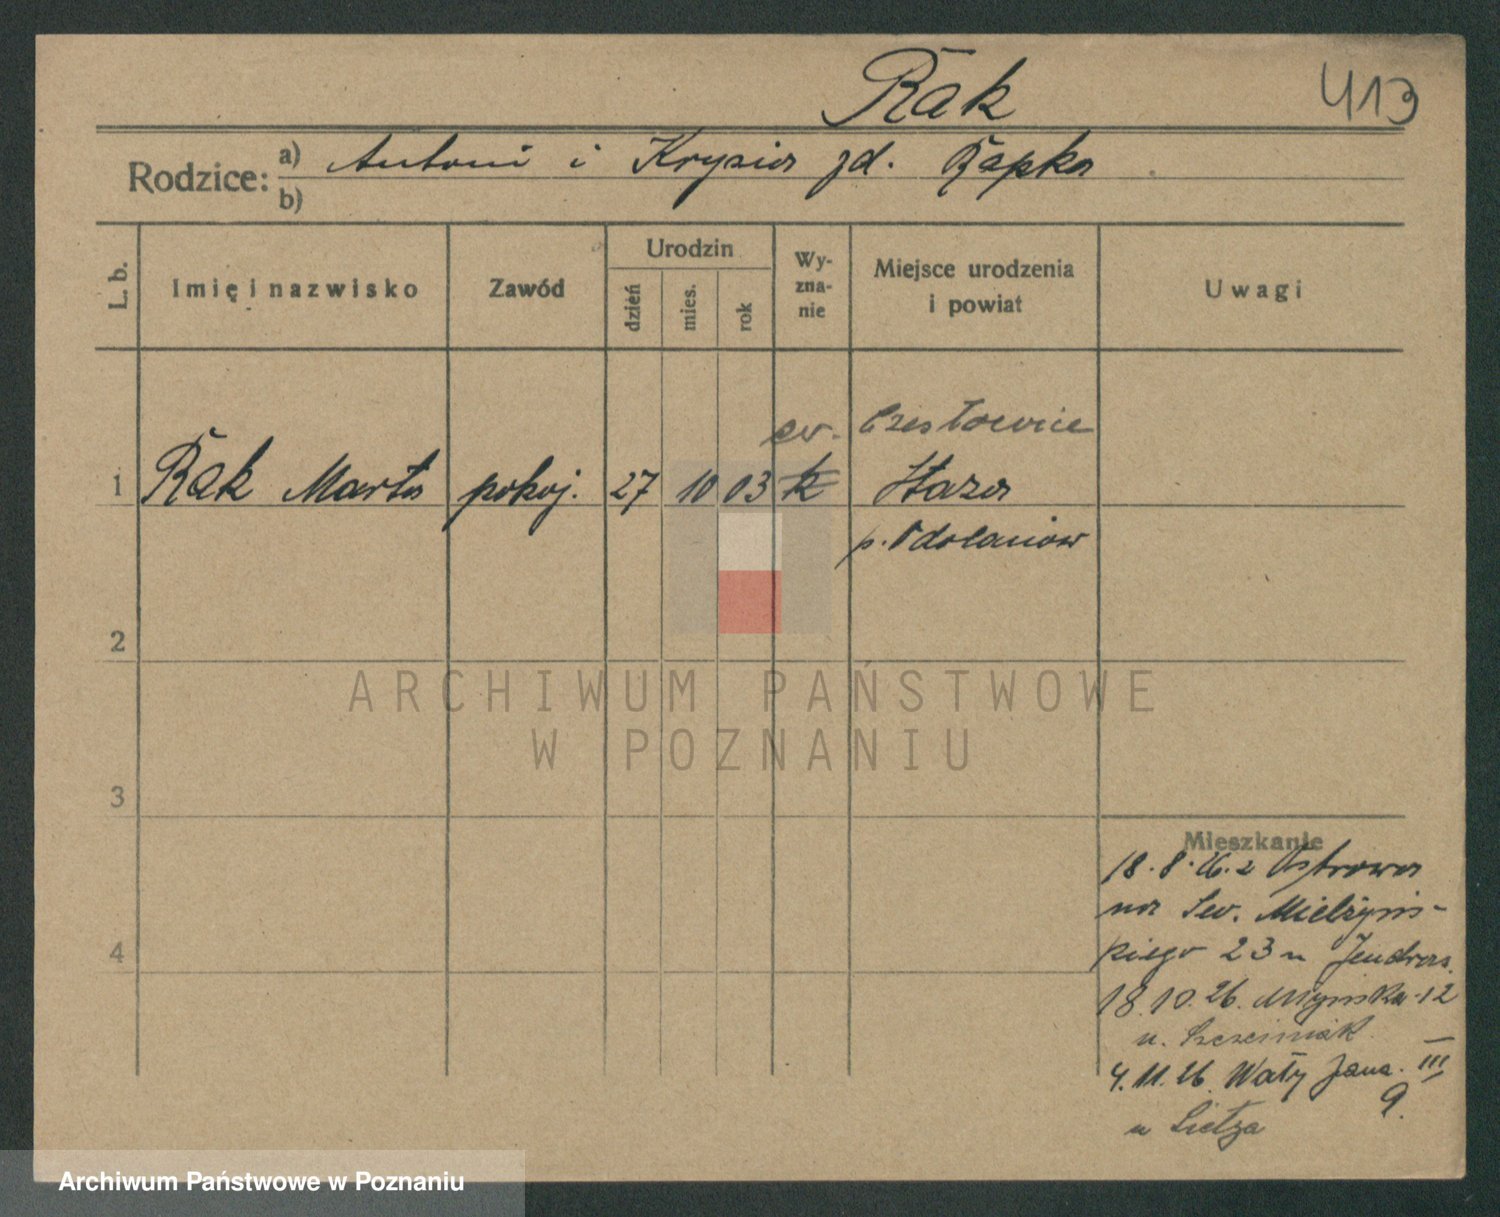 Rak
413
Rodzice: a) Antoni i Krysia zd. Rapka
b)
L. b.
Imię i nazwisko
Zawód
Urodzin
dzień
mies.
rok
Wy-
zna-
nie
Miejsce urodzenia
i powiat
Uwagi
ew. Czesławice
1 Rak Marta pokoj. 27 10 03 k
p. Odolanów
2
ARCHIWUM PAŃSTWOWE
W POZNANIU
3
Mieszkanie
18.8.26. z Ostrowa
na Sew. Mielżyńs-
kiego 23 u Jendras.
18.10.26. Młyńska 12
u. Szcześniak
4.11.26. Wały Jana III
9.
u
4
Archiwum Państwowe w Poznaniu